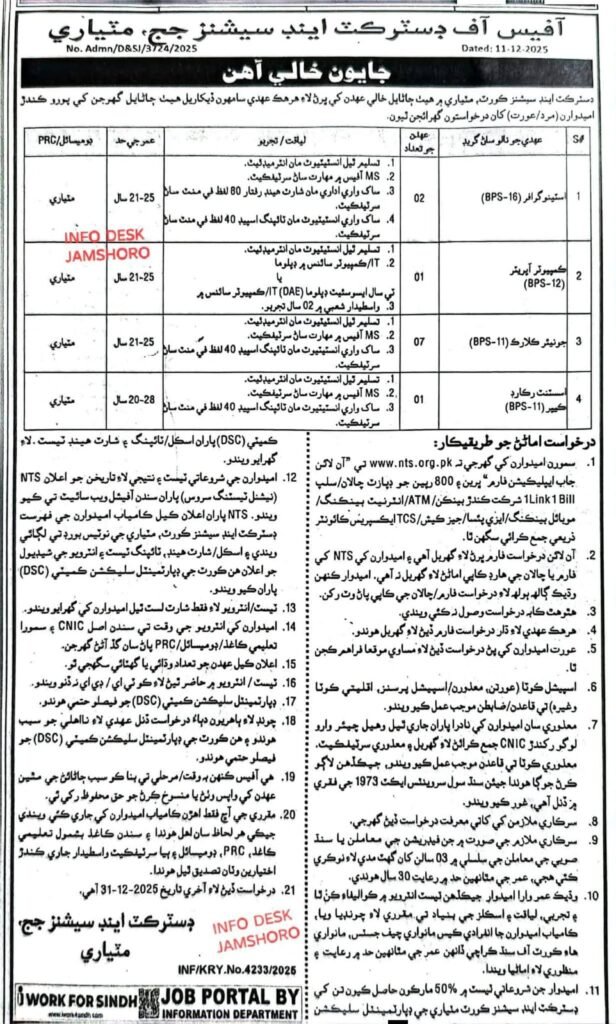 آفيس آف ڊسٽرڪٽ اينڊ سيشنز جج، مٽياري
No. Admn/D&SJ/3724/2025
Dated: 11-12-2025
جايون خالي آهن
ڊسٽرڪٽ اينڊ سيشنز ڪورٽ، مٽياري ۾ هيٺ ڄاڻايل خالي عهدن کي ڀرڻ لاءِ هر هڪ عهدي سامهون ڏيکاريل هيٺ ڄاڻايل گهرجن کي پورو ڪندڙ
اميدوارن (مرد/عورت) کان درخواستون گهرائجن ٿيون.
S#
عهدي جو نالو ساڻ گريڊ
عهدن جو تعداد
لياقت / تجربو
عمر جي حد
ڊوميسائل/PRC
1
اسٽينو گرافر (BPS-16)
02
1. تسليم ٿيل انسٽيٽيوٽ مان انٽرميڊئيٽ.
2. MS آفيس ۾ مهارت ساڻ سرٽيفڪيٽ.
3. ساک واري اداري مان شارٽ هينڊ رفتار 80 لفظ في منٽ ساڻ
سرٽيفڪيٽ.
4. ساک واري انسٽيٽيوٽ مان ٽائپنگ اسپيڊ 40 لفظ في منٽ ساڻ
سرٽيفڪيٽ.
21-25 سال
مٽياري
INFO DESK
JAMSHORO
2
ڪمپيوٽر آپريٽر
(BPS-12)
01
1. تسليم ٿيل انسٽيٽيوٽ مان انٽرميڊئيٽ.
2. IT/ڪمپيوٽر سائنس ۾ ڊپلوما
يا
ٽي سال ايسوسيئيٽ ڊپلوما (DAE) IT/ڪمپيوٽر سائنس ۾
3. واسطيدار شعبي ۾ 02 سال تجربو.
21-25 سال
مٽياري
3
جونيئر ڪلارڪ (BPS-11)
07
1. تسليم ٿيل انسٽيٽيوٽ مان انٽرميڊئيٽ.
2. MS آفيس ۾ مهارت ساڻ سرٽيفڪيٽ.
3. ساک واري انسٽيٽيوٽ مان ٽائپنگ اسپيڊ 40 لفظ في منٽ ساڻ
سرٽيفڪيٽ.
21-25 سال
مٽياري
4
اسسٽنٽ رڪارڊ
ڪيپر (BPS-11)
01
1. تسليم ٿيل انسٽيٽيوٽ مان انٽرميڊئيٽ.
2. MS آفيس ۾ مهارت ساڻ سرٽيفڪيٽ.
3. ساک واري انسٽيٽيوٽ مان ٽائپنگ اسپيڊ 40 لفظ في منٽ ساڻ
سرٽيفڪيٽ.
20-28 سال
مٽياري
درخواست اماڻڻ جو طريقيڪار:
1. سمورن اميدوارن کي گهرجي ته www.nts.org.pk تي "آن لائن
جاب ايپليڪيشن فارم" ڀرين ۽ 800 رپين جو ڊپازٽ چالان/سلپ
1Link 1Bill شرڪت ڪندڙ بينڪن/ATM/انٽرنيٽ بينڪنگ/
موبائل بينڪنگ/ايزي پئسا/جيز ڪيش/TCS ايڪسپريس ڪائونٽر
ذريعي جمع ڪرائي سگهن ٿا.
2. آن لائن درخواست فارم ڀرڻ لاءِ گهربل آهي ۽ اميدوارن کي NTS کي
فارم يا چالان جي هارڊ ڪاپي اماڻڻ لاءِ گهربل نه آهي. اميدوار ڪنهن
وڌيڪ ڳالهه ٻولهه لاءِ درخواست فارم/چالان جي ڪاپي پاڻ وٽ رکن.
3. هٿوهٿ ڪابه درخواست وصول نه ڪئي ويندي.
4. هر هڪ عهدي لاءِ ڌار درخواست فارم ڏيڻ لاءِ گهربل هوندو.
5. عورت اميدوارن کي پڻ درخواست ڏيڻ لاءِ مساوي موقعا فراهم ڪجن
ٿا.
6. اسپيشل ڪوٽا (عورتن، معذورن/اسپيشل پرسنز، اقليتي ڪوٽا
وغيره) تي قاعدن/ضابطن موجب عمل ڪيو ويندو.
7. معذوري ساڻ اميدوارن کي نادرا پاران جاري ٿيل وهيل چيئر وارو
لوگو رکندڙ CNIC جمع ڪرائڻ لاءِ گهربل ۽ معذوري سرٽيفڪيٽ.
معذوري ڪوٽا تي قاعدن موجب عمل ڪيو ويندو، جيڪڏهن لاڳو
ڪرڻ جوڳا هوندا جيئن سنڌ سول سرونٽس ايڪٽ 1973 جي فقري
۾ ڏنل آهي، غور ڪيو ويندو.
8. سرڪاري ملازمن کي کاتي معرفت درخواست ڏيڻ گهرجي.
9. سرڪاري ملازم جي صورت ۾ جن فيڊريشن جي معاملن يا سنڌ
صوبي جي معاملن جي سلسلي ۾ 03 سالن کان گهٽ مدي لاءِ نوڪري
ڪئي هجي، عمر جي مٿانهين حد ۾ رعايت 30 سال هوندي.
10. وڌيڪ عمر وارا اميدوار جيڪڏهن ٽيسٽ انٽرويو ۾ ڪواليفاءِ ڪن ٿا
۽ تجربي، لياقت ۽ اسڪلز جي بنياد تي مقرري لاءِ چونڊيا ويا،
ڪامياب اميدوارن جا انفرادي ڪيس مانواري چيف جسٽس، مانواري
هاءِ ڪورٽ آف سنڌ ڪراچي ڏانهن عمر جي مٿانهين حد ۾ رعايت ۽
منظوري لاءِ اماڻيا ويندا.
11. اميدوار جن شروعاتي ٽيسٽ ۾ 50% مارڪون حاصل ڪيون تن کي
ڊسٽرڪٽ اينڊ سيشنز ڪورٽ مٽياري جي ڊپارٽمينٽل سليڪشن
ڪميٽي (DSC) پاران اسڪل/ٽائپنگ ۽ شارٽ هينڊ ٽيسٽ لاءِ
گهرايو ويندو.
12. اميدوارن جي شروعاتي ٽيسٽ ۽ نتيجي لاءِ تاريخن جو اعلان NTS
(نيشنل ٽيسٽنگ سروس) پاران سندن آفيشل ويب سائيٽ تي ڪيو
ويندو. NTS پاران اعلان ڪيل ڪامياب اميدوارن جي فهرست
ڊسٽرڪٽ اينڊ سيشنز ڪورٽ، مٽياري جي نوٽيس بورڊ تي لڳائي
ويندي ۽ اسڪل/شارٽ هينڊ، ٽائپنگ ٽيسٽ ۽ انٽرويو جي شيڊيول
جو اعلان هن ڪورٽ جي ڊپارٽمينٽل سليڪشن ڪميٽي (DSC)
پاران ڪيو ويندو.
13. ٽيسٽ/انٽرويو لاءِ فقط شارٽ لسٽ ٿيل اميدوارن کي گهرايو ويندو.
14. اميدوارن کي انٽرويو جي وقت تي سندن اصل CNIC ۽ سمورا
تعليمي ڪاغذ/ڊوميسائل/PRC پاڻ ساڻ گڏ آڻڻ گهرجن.
15. اعلان ڪيل عهدن جو تعداد وڌائي يا گهٽائي سگهجي ٿو.
16. ٽيسٽ / انٽرويو ۾ حاضر ٿيڻ لاءِ ڪو ٽي اي/ ڊي اي نه ڏنو ويندو.
17. ڊپارٽمينٽل سليڪشن ڪميٽي (DSC) جو فيصلو حتمي هوندو.
18. چونڊ لاءِ ٻاهريون دٻاءُ درخواست ڏنل عهدي لاءِ نااهلي جو سبب
هوندو ۽ هن ڪورٽ جي ڊپارٽمينٽل سليڪشن ڪميٽي (DSC) جو
فيصلو حتمي هوندو.
19. هي آفيس ڪنهن به وقت/مرحلي تي بنا ڪو سبب ڄاڻائڻ جي مٿين
عهدن کي واپس وٺڻ يا منسوخ ڪرڻ جو حق محفوظ رکي ٿي.
20. مقرري جي آڇ فقط انهن ڪامياب اميدوارن کي جاري ڪئي ويندي
جيڪي هر لحاظ سان اهل هوندا ۽ سندن ڪاغذ بشمول تعليمي
ڪاغذ، PRC، ڊوميسائل ۽ ٻيا سرٽيفڪيٽ واسطيدار جاري ڪندڙ
اختيارين وٽان تصديق ٿيل هوندا.
21. درخواست ڏيڻ لاءِ آخري تاريخ 31-12-2025 آهي.
ڊسٽرڪٽ اينڊ سيشنز جج،
مٽياري
INFO DESK
JAMSHORO
INF/KRY.No.4233/2025
I WORK FOR SINDH
www.iwork4sindh.com
JOB PORTAL BY
INFORMATION DEPARTMENT